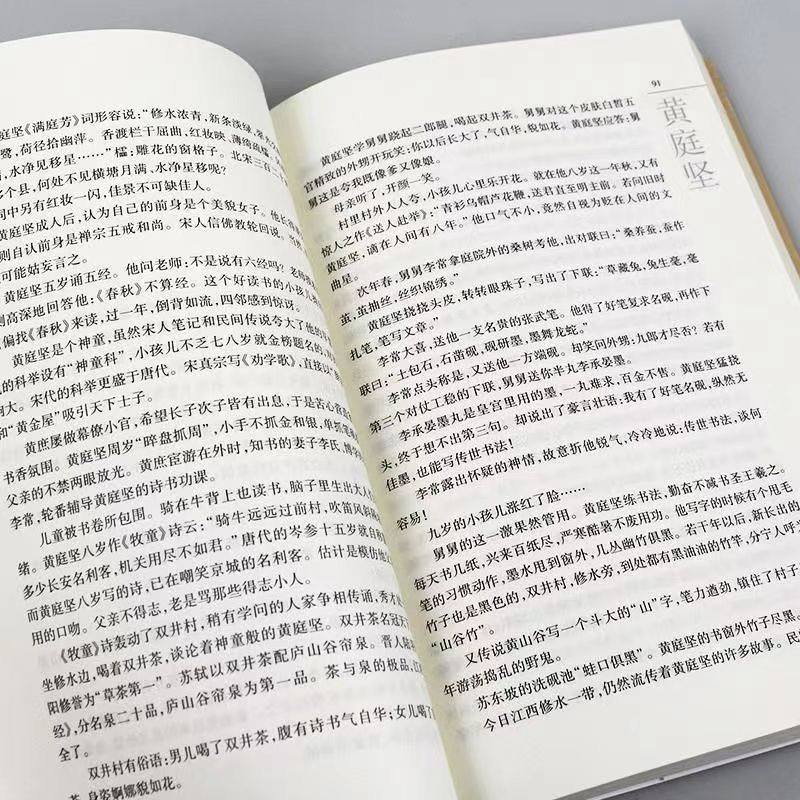 庭坚《满庭芳》词形容说：“修水浓青，新条淡绿，
鹭，荷径拾幽萍。香渡栏干屈曲，红妆映、薄绮疏棂。
水净见移星……”棂；雕花的窗格子。北宋三百
多个县，何处不见横塘月满、水净星移呢？
词中另有红妆一闪，佳景不可缺佳人。
黄庭坚成人后，认为自己的前身是个美貌女子。他长得
则自认前身是禅宗五戒和尚。宋人信佛教轮回说，当
可能姑妄言之。
黄庭坚五岁诵五经。他问老师：不是说有六经吗？老师
则高深地回答他：《春秋》不算经。这个好读书的小孩儿
偏找《春秋》来读，过一年，倒背如流，四邻感到惊讶。
黄庭坚是个神童，虽然宋人笔记和民间传说夸大了他的
的科举设有“神童科”，小孩儿不乏七八岁就金榜题名的，
倒大。宋代的科举更盛于唐代。宋真宗写《劝学歌》，直接以“
和“黄金屋”吸引天下士子。
黄庶屡做幕僚小官，希望长子次子皆有出息，于是苦心营
书香氛围。黄庭坚周岁“晬盘抓周”，小手不抓金和银，单抓
父亲的不禁两眼放光。黄庶宦游在外时，知书的妻子李氏，
李常，轮番辅导黄庭坚的诗书功课。
儿童被书卷所包围。骑在牛背上也读书，脑子里生出大人
绪。黄庭坚八岁作《牧童》诗云：“骑牛远远过前村，吹笛风
多少长安名利客，机关用尽不如君。”唐代的岑参十五岁就自
而黄庭坚八岁写的诗，已在嘲笑京城的名利客。估计是模仿
用的口吻。父亲不得志，老是骂那些得志小人。
《牧童》诗轰动了双井村，稍有学问的人家争相传诵，秀才
坐修水边，喝着双井茶，谈论着神童般的黄庭坚。双井茶名冠天
阳修誉为“草茶第一”。苏轼以双井茶配庐山谷帘泉。晋人陆
经》，分名泉二十品，庐山谷帘泉为第一品。茶与泉的极品，
全了。
双井村有俗语：男儿喝了双井茶，腹有诗书气自华；女儿喝了
茶，身姿婀娜貌如花。
91
黄庭坚
黄庭坚学舅舅跷起二郎腿，喝起双井茶。舅舅对这个皮肤白皙五
官精致的外甥开玩笑：你以后长大了，气自华，貌如花。黄庭坚应答：舅
舅这是夸我既像爹又像娘。
母亲听了，开颜一笑。
村里村外人人夸，小孩儿心里乐开花。就在他八岁这一年秋，又有
惊人之作《送人赴举》：“青衫乌帽芦花鞭，送君直至明主前。若问旧时
黄庭坚，谪在人间有八年。”他口气不小，竟然自视为贬在人间的文
曲星。
次年春，舅舅李常拿庭院外的桑树考他，出对联曰：“桑养蚕，蚕作
茧，茧抽丝，丝织锦绣。”
黄庭坚挠挠头皮，转转眼珠子，写出了下联：“草藏兔，兔生毫，毫
扎笔，笔写文章。”
李常大喜，送他一支名贵的张武笔。他得了好笔复求名砚，再作下
联曰：“土包石，石凿砚，砚研墨，墨舞龙蛇。”
李常点头称是，又送他一方端砚。却笑问外甥：九郎才尽否？若有
第三个对仗工稳的下联，舅舅送你半丸李承晏墨。
李承晏墨丸是皇宫里用的墨，一丸难求，百金不售。黄庭坚猛挠
头，终于想不出第三句。却说出了豪言壮语：我有了好笔名砚，纵然无
佳墨，也能写传世书法！
李常露出怀疑的神情，故意折他锐气，冷冷地说：传世书法，谈何
容易！
九岁的小孩儿涨红了脸……
舅舅的这一激果然管用。黄庭坚练书法，勤奋不减书圣王羲之。
每天书几纸，兴来百纸尽，严寒酷暑不废用功。他写字的时候有个甩毛
笔的习惯动作，墨水甩到窗外，几丛幽竹俱黑。若干年以后，新长出的
竹子也是黑色的，双井村，修水旁，到处都有黑油油的竹竿，分宁人呼
“山谷竹”。
又传说黄山谷写一个斗大的“山”字，笔力遒劲，镇住了村子
年游荡捣乱的野鬼。
苏东坡的洗砚池“蛙口俱黑”。黄庭坚的书窗外竹子尽黑。
今日江西修水一带，仍然流传着黄庭坚的许多故事。民